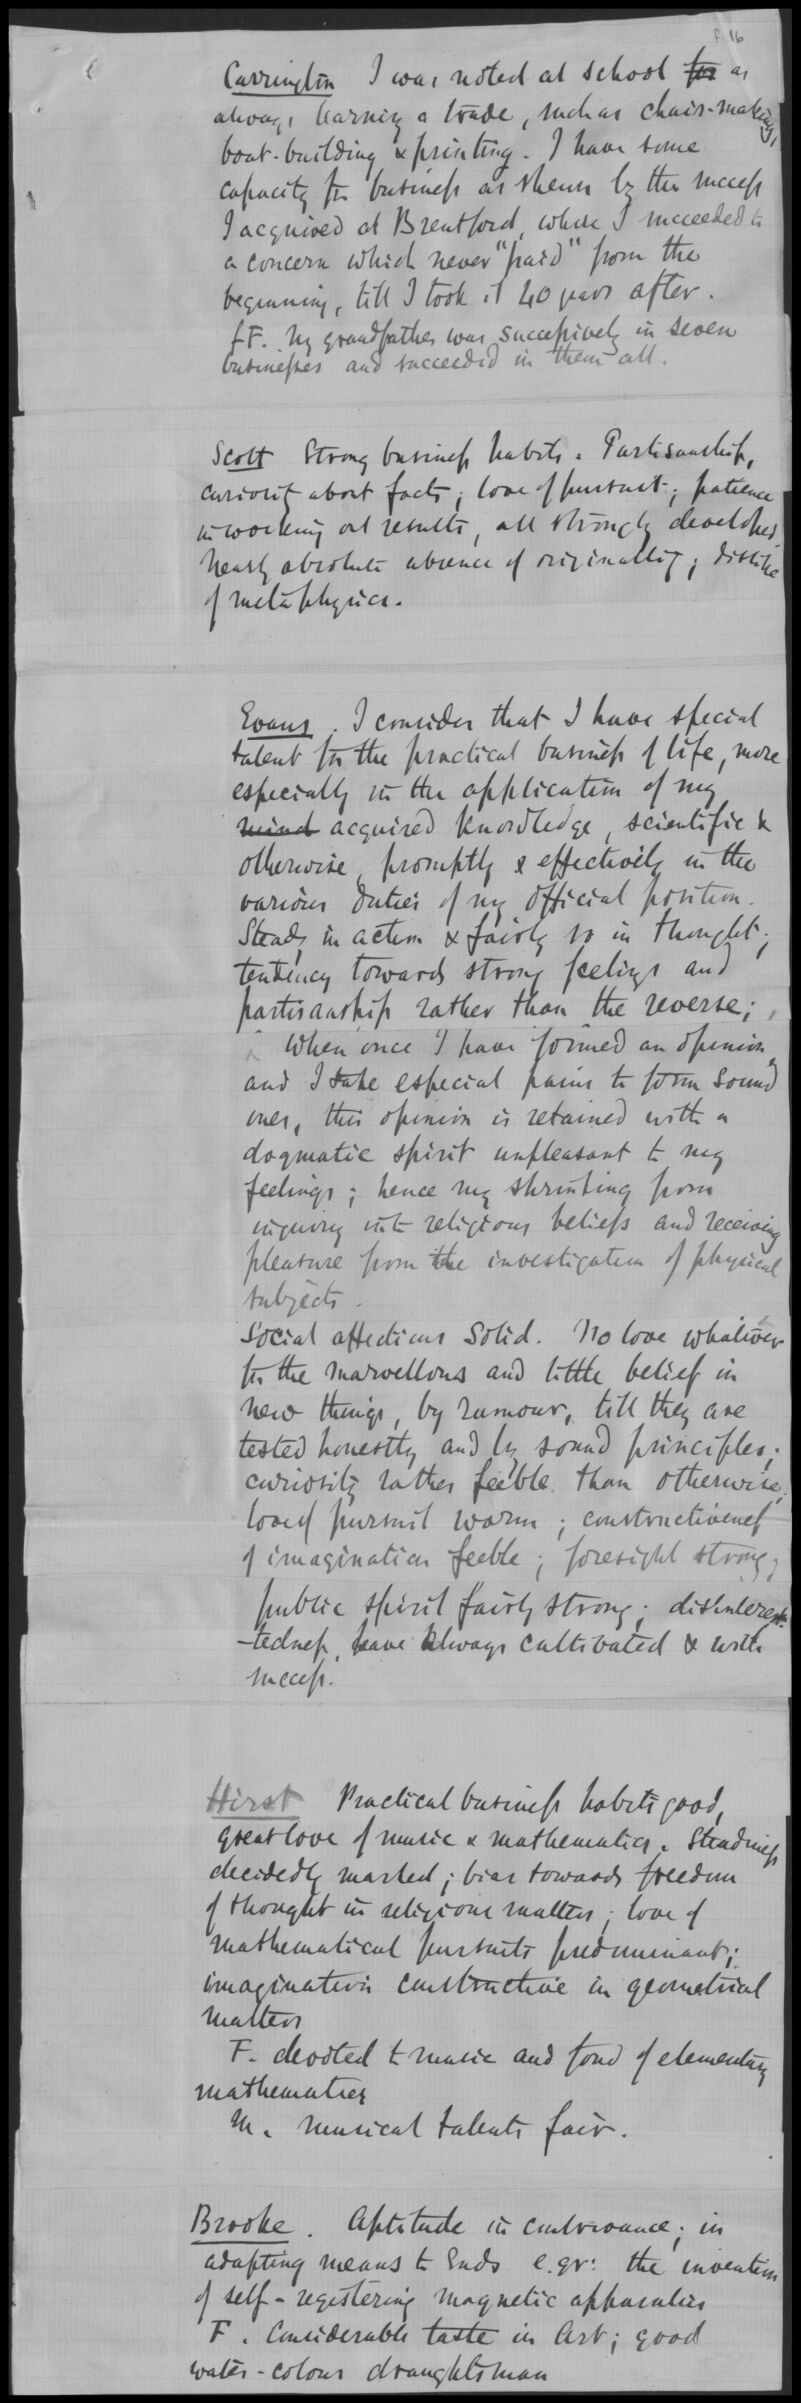 f. 16
Carrington I was noted at school for as
always learning a trade, such as chair-making,
boat-building & printing. I have some
capacity for business as shewn by the success
I acquired at Brentford, where I succeeded to
a concern which never "paid" from the
beginning, till I took it 40 years after.
fF. My grandfather was successively in seven
businesses and succeeded in them all.
Scott Strong business habits. Partisanship,
curiosity about facts; love of pursuit; patience
in working out results, all strongly developed.
Nearly absolute absence of originality; dislike
of metaphysics.
Evans. I consider that I have special
talent for the practical business of life, more
especially in the application of my
mind acquired knowledge, scientific &
otherwise, promptly & effectively in the
various duties of my official position.
Steady in action & fairly so in thought;
tendency towards strong feelings and
partisanship rather than the reverse;
When once I have formed an opinion,
and I take especial pains to form sound
ones, this opinion is retained with a
dogmatic spirit unpleasant to my
feelings; hence my shrinking from
inquiry into religious beliefs and receiving
pleasure from the investigation of physical
subjects.
Social affections solid. No love whatever
for the marvellous and little belief in
new things, by rumour, till they are
tested honestly and by sound principles;
curiosity rather feeble than otherwise,
love of pursuit warm; constructiveness
of imagination feeble; foresight strong;
public spirit fairly strong; disinteres-
-tedness, have always cultivated & with
success.
Hirst Practical business habits good,
great love of music & mathematics. Steadiness
decidedly marked; bias towards freedom
of thought in religious matters; love of
mathematical pursuits predominant;
imagination constructive in geometrical
matters
F. devoted to music and fond of elementary
mathematics
M. musical talents fair.
Brooke. Aptitude in contrivance; in
adapting means to Ends e.gr: the invention
of self-registering magnetic apparatus
F. Considerable taste in Art; good
water-colour draughtsman